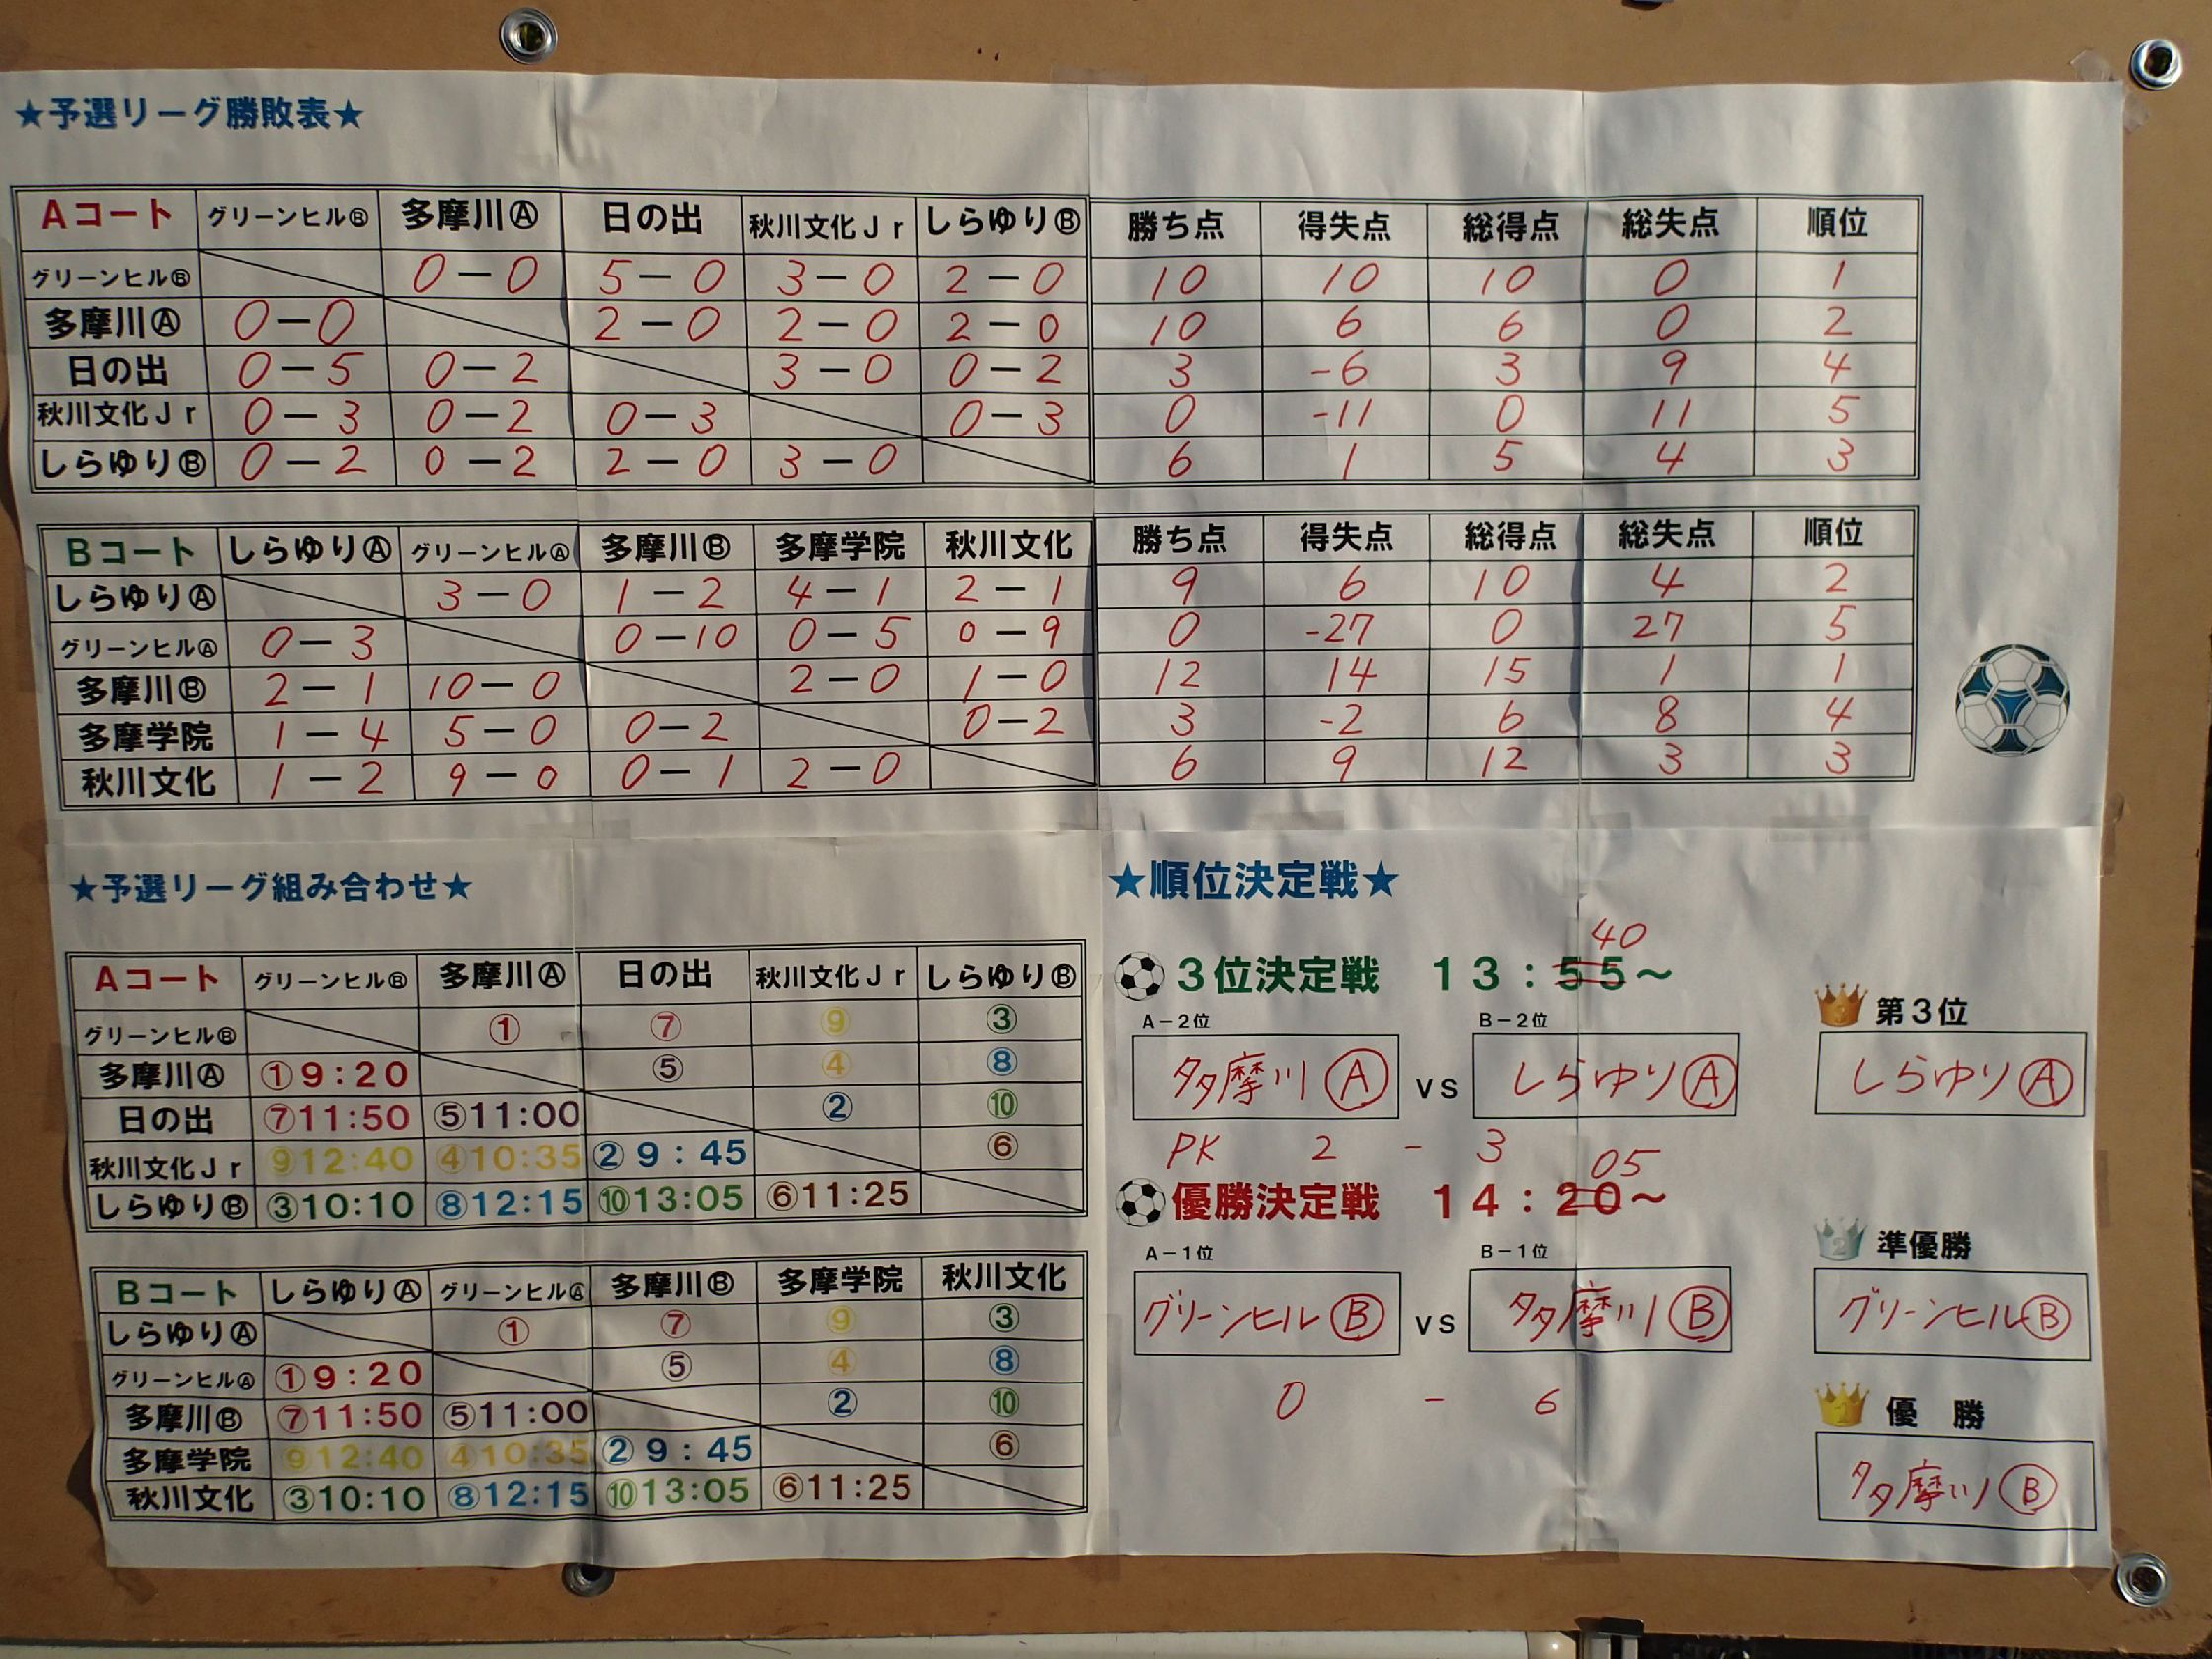 ★予選リーグ勝敗表★
Aコート グリーンヒルⒷ 多摩川Ⓐ 日の出 秋川文化Jr しらゆりⒷ 勝ち点 得失点 総得点 総失点 順位
グリーンヒルⒷ 0－0 5－0 3－0 2－0 10 10 10 0 1
多摩川Ⓐ 0－0 2－0 2－0 2－0 10 6 6 0 2
日の出 0－5 0－2 3－0 0－2 3 -6 3 9 4
秋川文化Jr 0－3 0－2 0－3 0－3 0 -11 0 11 5
しらゆりⒷ 0－2 0－2 2－0 3－0 6 1 5 4 3
Bコート しらゆりⒶ グリーンヒルⒶ 多摩川Ⓑ 多摩学院 秋川文化 勝ち点 得失点 総得点 総失点 順位
しらゆりⒶ 3－0 1－2 4－1 2－1 9 6 10 4 2
グリーンヒルⒶ 0－3 0－10 0－5 0－9 0 -27 0 27 5
多摩川Ⓑ 2－1 10－0 2－0 1－0 12 14 15 1 1
多摩学院 1－4 5－0 0－2 0－2 3 -2 6 8 4
秋川文化 1－2 9－0 0－1 2－0 6 9 12 3 3
★予選リーグ組み合わせ★
Aコート グリーンヒルⒷ 多摩川Ⓐ 日の出 秋川文化Jr しらゆりⒷ
グリーンヒルⒷ ① ⑦ ⑨ ③
多摩川Ⓐ ①9:20 ⑤ ④ ⑧
日の出 ⑦11:50 ⑤11:00 ② ⑩
秋川文化Jr ⑨12:40 ④10:35 ②9:45 ⑥
しらゆりⒷ ③10:10 ⑧12:15 ⑩13:05 ⑥11:25
Bコート しらゆりⒶ グリーンヒルⒶ 多摩川Ⓑ 多摩学院 秋川文化
しらゆりⒶ ① ⑦ ⑨ ③
グリーンヒルⒶ ①9:20 ⑤ ④ ⑧
多摩川Ⓑ ⑦11:50 ⑤11:00 ② ⑩
多摩学院 ⑨12:40 ④10:35 ②9:45 ⑥
秋川文化 ③10:10 ⑧12:15 ⑩13:05 ⑥11:25
★順位決定戦★
40
3位決定戦 13:55～
A－2位 B－2位
多摩川Ⓐ vs しらゆりⒶ
PK 2 - 3
05
優勝決定戦 14:20～
A－1位 B－1位
グリーンヒルⒷ vs 多摩川Ⓑ
0 - 6
3 第3位
しらゆりⒶ
2 準優勝
グリーンヒルⒷ
1 優 勝
多摩川Ⓑ